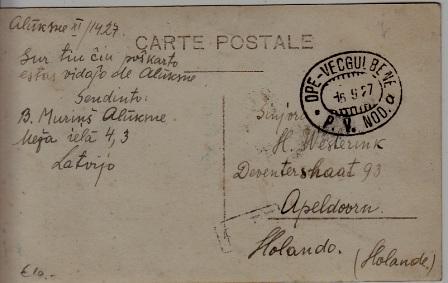 Alūksne XI/1927.
CARTE POSTALE
Sur tiu ĉiu poŝkarto
estas vidaĵo de Alūksne
Sendinto:
B. Muriņš Alūksne
Meža ielā 4,3
Latvijo
DPE-VECGULBENE
P. V. NOD. a
Sinjoro
H. Westerink
Deventerstraat 93
Apeldoorn.
Holando.
(Holande.)
€10.-